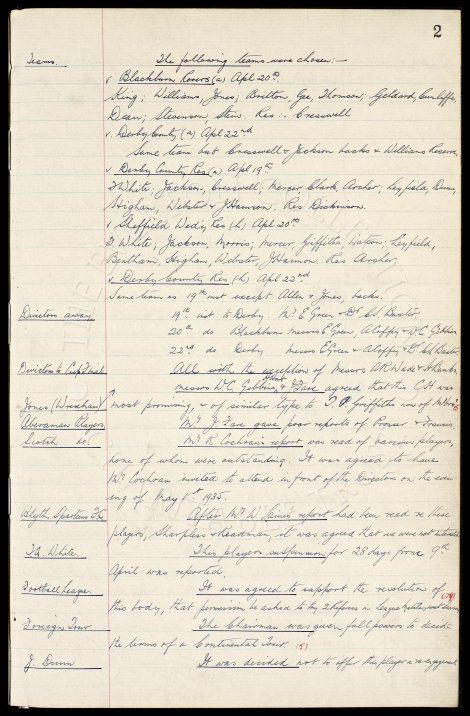 2
Teams. The following teams were chosen:-
v Blackburn Rovers (a) Apl 20th.
King; Williams, Jones; Britton, Gee, Thomson; Geldard, Cunliffe,
Dean; Stevenson, Stein. Res:- Cresswell
v. Derby County (a) Apl 22nd
Same team but Cresswell & Jackson backs & Williams Reserve.
v Derby County Res (a) Apl 19th.
F White; Jackson, Cresswell; Mercer, Clark, Archer; Leyfield, Dunn,
Higham, Webster & J Hannon. Res Dickinson.
v Sheffield Wedy Res (h) Apl 20th
F. White; Jackson, Morris; Mercer, Griffiths, Watson; Leyfield,
Bentham, Higham, Webster, J Hannon. Res Archer.
v Derby County Res (h) Apl 22nd
Same team as 19th inst except Allen & Jones, backs.
Directors away. 19th inst to Derby. Mr E Green & Dr. Baxter.
20th do Blackburn messrs E Green, & W.C. Gibbins
22nd do Derby messrs E Green & & Dr Baxter.
Directors to Cup Final. All with the exception of Messrs A R Wade &
messrs W.C. Gibbins & J Fare agreed that this C.H was
Jones (Wrexham) most promising, & of similar type to T. P. Griffiths now of
Aberaman Players, Mr J. Fare gave poor reports of Prosser & Francis
Scotch do. Mr R. Cochran's report was read of various players,
none of whom were outstanding. It was agreed to have
Mr Cochran invited to attend in front of the Directors on the even-
ing of May 1st 1935.
Blyth Spartans F.C After Mr W. report had been read re these
players, Sharpless & Readman, it was agreed that we were not interested
T.A. White. This players suspension for 28 days from 9th
April was reported
Football League. It was agreed to support the resolution of
this body, that permission be asked to try 2 Referees in League
Foreign Tour The Chairman was given full powers to decide
the terms of a Continental Tour.
J. Dunn It was decided not to offer this player a re-engagement